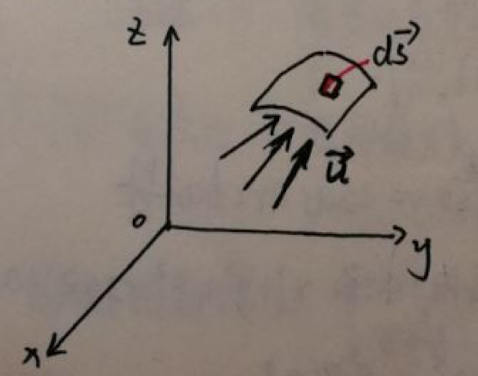 z
d\vec{s}
\vec{u}
o
y
x